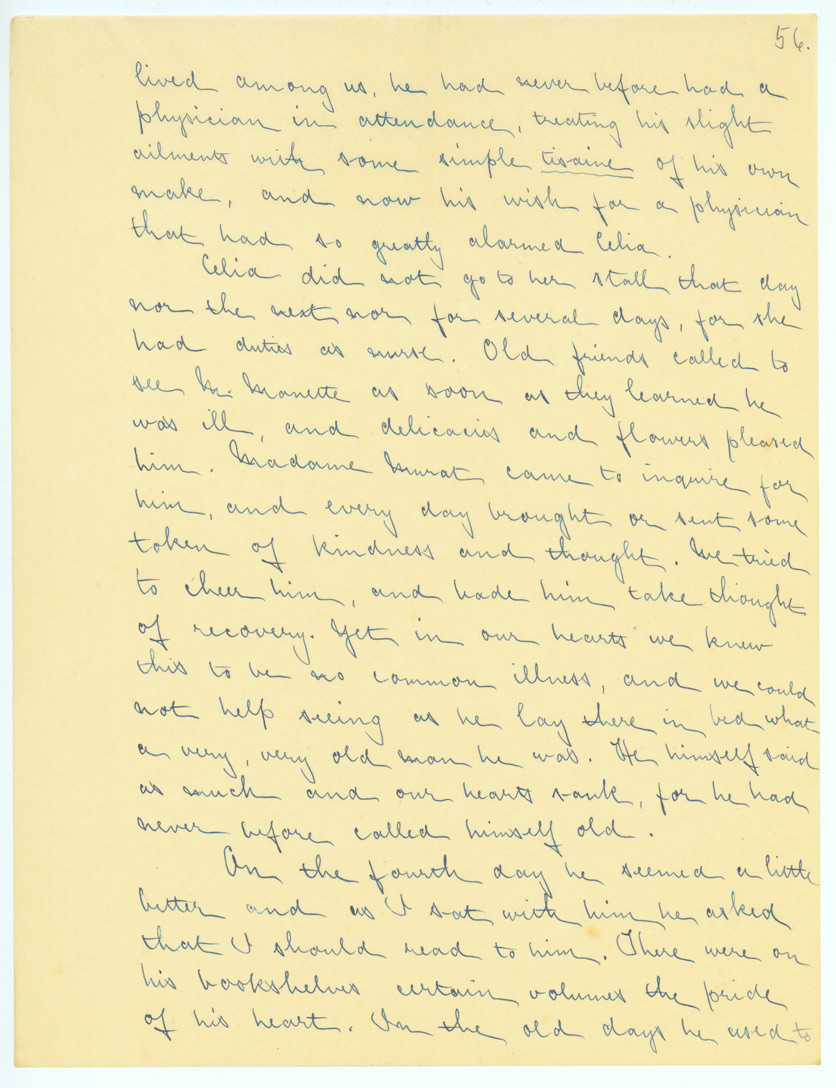 56.
lived among us, he had never before had a
physician in attendance, treating his slight
ailments with some simple tisaine of his own
make, and now his wish for a physician
that had so greatly alarmed Celia.
Celia did not go to her stall that day
nor the next nor for several days, for she
had duties as nurse. Old friends called to
see M. Manette as soon as they learned he
was ill, and delicacies and flowers pleased
him. Madame Murat came to inquire for
him, and every day brought or sent some
token of kindness and thought. We tried
to cheer him, and bade him take thought
of recovery. Yet in our hearts we knew
this to be no common illness, and we could
not help seeing as he lay there in bed what
a very, very old man he was. He himself said
as much and our hearts sank, for he had
never before called himself old.
On the fourth day he seemed a little
better and as I sat with him he asked
that I should read to him. There were on
his bookshelves certain volumes the pride
of his heart. In the old days he used to